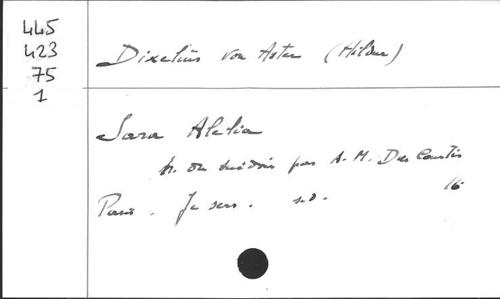 445
423
75
1
Dixelius von Aster (Hildur)
Sara Alelia
tr. du suédois par A. M. Des Courtis
Paris. Je sers. s.d. 16